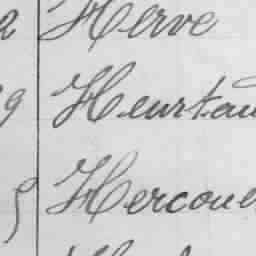 2 Herve
9 Heurtau
5 Hercoue